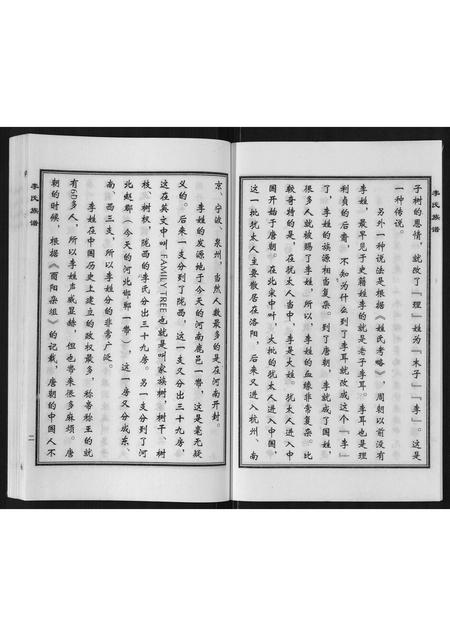 李氏族谱
子树的恩情，就改了「理」姓为「木子」「李」。这是
一种传说。
另外一种说法是根据《姓氏考略》，周朝以前没有
李姓，最早见于史籍姓李的就是老子李耳。李耳也是理
利贞的后裔，不知为什么到了李耳就改成这个「李」
字。李姓的族源相当复杂。到了唐朝，李就成了国姓，
很多人就被赐了李姓，所以，李姓的血缘非常复杂。比
较奇特的是，在犹太人当中，李是大姓。犹太人进入中
国开始于唐朝。在北宋中叶，大批的犹太人进入中国，
这一批犹太人主要散居在洛阳，后来又进入杭州、南
京、宁波、泉州，当然人数最多的是在河南开封。
李姓的发源地于今天的河南鹿邑一带，这是毫无疑
义的。后来一支分到了陇西，这一支又分出三十九房
这在英文中叫FAMILY TREE也就是叫家族树，树干、树
枝、树杈，陇西的李氏分出三十九房。另一支分到了河
北赵郡（今天的河北邯郸一带），这一房又分成东、
南、西三支，所以李姓分的非常广泛。
李姓在中国历史上建立的政权最多，称帝称王的就
有60多人，所以李姓声威显赫，但也带来很多麻烦。唐
朝的时候，根据《酉阳杂俎》的记载，唐朝的中国人不
李氏族谱
二